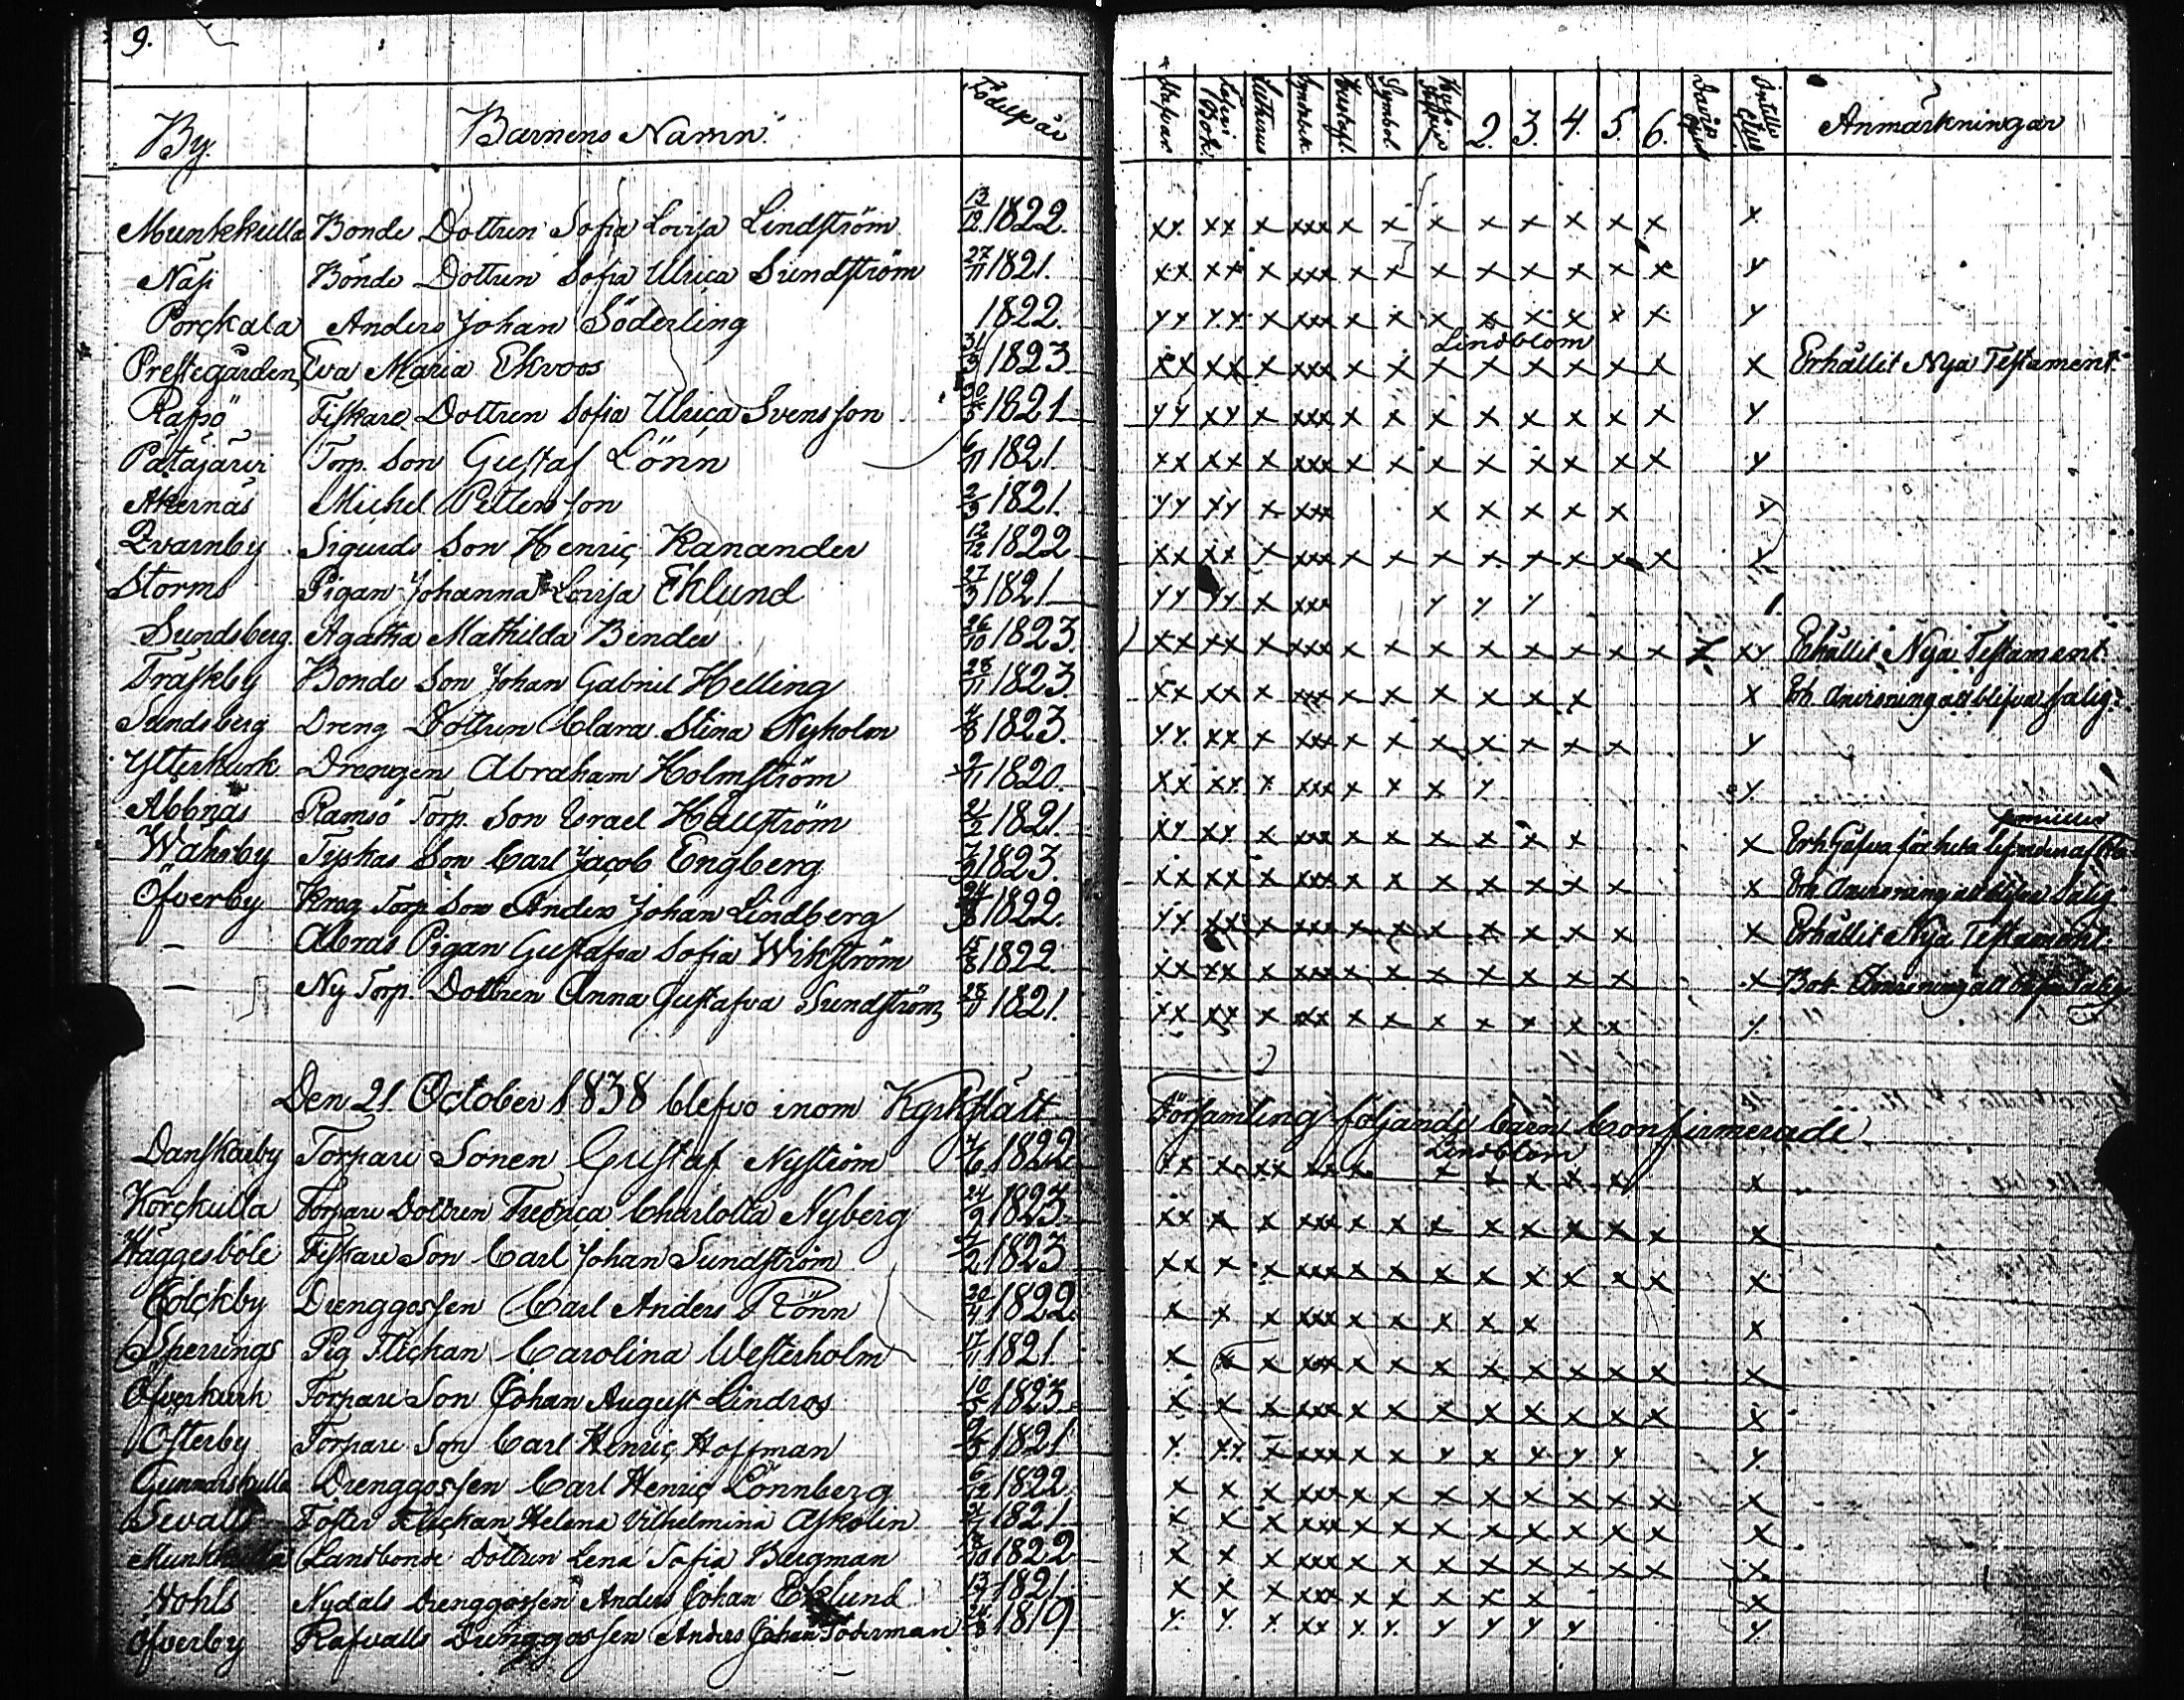 9.
By. Barnens Namn. Födelseår Bok. Lutherus Symbol. 2. 3. 4. 5. 6. Anmärkningar
Munkkulla Bonde Dottren Sofia Lovisa Lindström 13/12 1822. xx xx x xxx x x x x x x x x x
Näsi Bonde Dottren Sofia Ulrica Sundström 27/11 1821. xx xx x xxx x x x x x x x x x
Porckala Anders Johan Söderling 1822. xx xx x xxx x x x x x x x x x
Lindblom
Prestegården Eva Maria Ekroos 31/3 1823. xx xx x xxx x x x x x x x x x Erhållit Nya Testament.
Rafsö Fiskare Dottren Sofia Ulrica Svensson 1821 xx xx x xxx x x x x x x x x x
Patajärvi Torp. Son Gustaf Lönn 6/11 1821. xx xx x xxx x x x x x x x x x
Åkernäs Michel Pettersson 2/3 1821. xx xx x xxx x x x x x x
Qvarnby Sigurds Son Henric Kanander 12/12 1822 xx xx x xxx x x x x x x x x x
Storms Pigan Johanna Lovisa Eklund 27/3 1821 xx xx x xxx x x x
Sundsberg. Agatha Mathilda Binder 26/10 1823. xx xx x xxx x x x x x x x x x xx Erhållit Nya Testament.
Träskby Bonde Son Johan Gabriel Helling 28/11 1823. xx xx x xxx x x x x x x x Erh. Anvisning att blifva salig.
Sundsberg Dreng Dottren Clara Stina Nyholm 1823. xx xx x xxx x x x x x x x x
Ytterkurk Drengen Abraham Holmström 2/11 1820. xx xx x xxx x x x x x
Abbnäs Ramsö Torp. Son Israel Hällström 1821. xx xx x xxx x x x x x x x
Wahsby Son Carl Jacob Engberg 1823. xx xx x xxx x x x x x x x x Erh. Anvisning att blifva Salig
Öfverby Krog Torp. Son Anders Johan Lindberg 1822. xx xx x xxx x x x x x x x x Erhållit Nya Testament.
— Abras Pigan Gustafva Sofia Wikström 15/8 1822 xx xx x xxx x x x x x x x x Bok. Anvisning att blifva Salig
— Ny Torp. Dottren Anna Gustafva Sundström, 28/11 1821. xx xx x xxx x x x x x x x x
Den 21 October 1838 blefvo inom Kyrkslätt Församling följande barn Confirmerade.
Lindblom
Danskarby Torpare Sonen Gustaf Nyström 1822. xx xx xx x x x x x x
Korckulla Torpare Dottren Fredrica Charlotta Nyberg 24/9 1823. xx x x xxx x x x x x x x x x
Häggesböle Fiskare Son Carl Johan Sundström 1823 xx x x xxx x x x x x x x x x
Colckby Drenggossen Carl Anders Rönn 20/4 1822. x x x xxx x x x x x x
Sperrings Pig Flickan Carolina Westerholm 17/11 1821. x x x xxx x x x x x x x x x
Öfverkurk Torpare Son Johan August Lindros 10/5 1823. x x x xxx x x x x x x x x x
Österby Torpare Son Carl Henric Hoffman 1821 x xx x xxx x x x x x x x x
Gunnarskulla Drenggossen Carl Henric Lönnberg 6/12 1822 x x x xxx x x x x x x x x x
Sevalls Foster Flickan Helena Vilhelmina Askolin 1821 x x x xxx x x x x x x x x x
Munkkulla Landbonde Dottren Lena Sofia Bergman 1822 x x x xxx x x x x x x x x x
Hohls Nydals Drenggossen Anders Johan Eklund 1821. x x x xxx x x x x x x
Öfverby Rafvalls Drenggossen Anders Johan Söderman 1819 x x x xx x x x x x x x